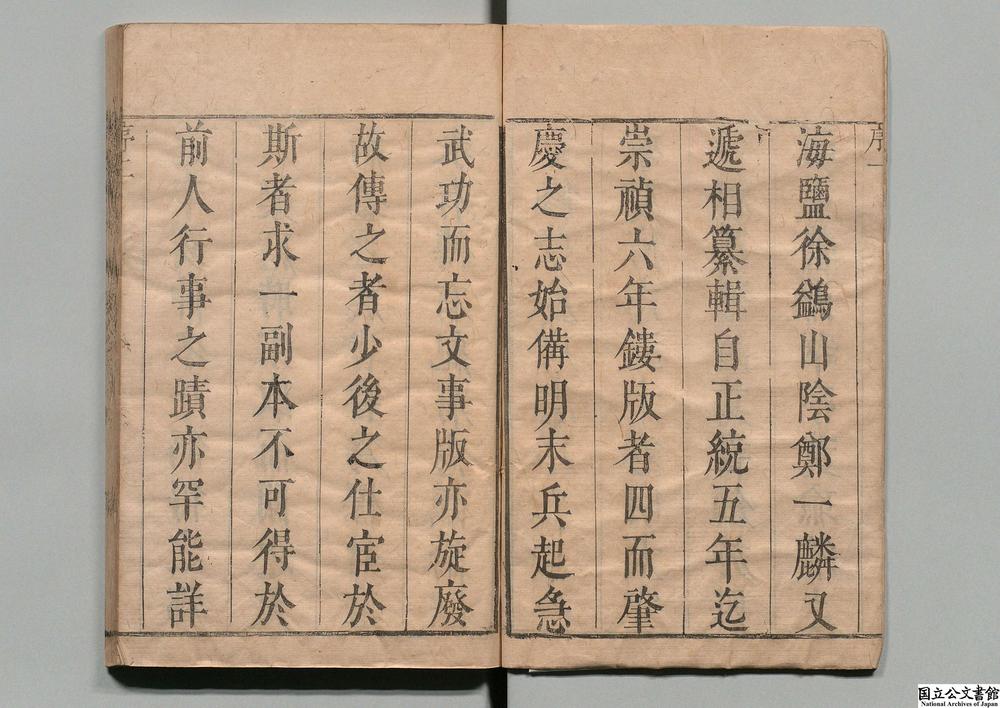 海鹽徐鷁山陰鄭一麟又
遞相纂輯自正統五年迄
崇禎六年鏤版者四而肇
慶之志始備明末兵起急
武功而忘文事版亦旋廢
故傳之者少後之仕宦於
斯者求一副本不可得於
前人行事之蹟亦罕能詳
国立公文書館
National Archives of Japan